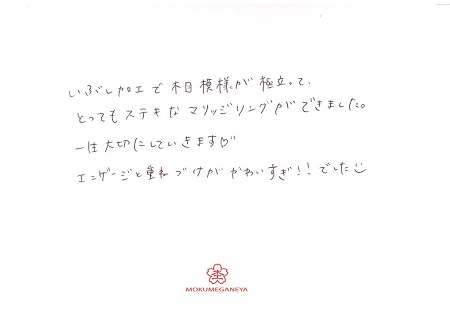 いぶし加工で木目模様が極立って、
とってもステキなマリッジリングができました。
一生大切にしていきます♡♡
エンゲージと重ねづけがかわいすぎ!!でした☺
MOKUMEGANEYA